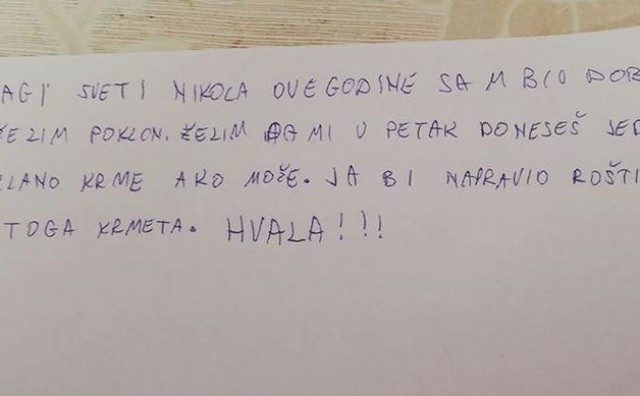 AGI SVETI NIKOLA OVE GODINE SAM BIO DOB
ŽELIM POKLON. ŽELIM DA MI U PETAK DONESEŠ JED
LANO KRME AKO MOŽE. JA BI NAPRAVIO ROŠTI
TOGA KRMETA. HVALA!!!